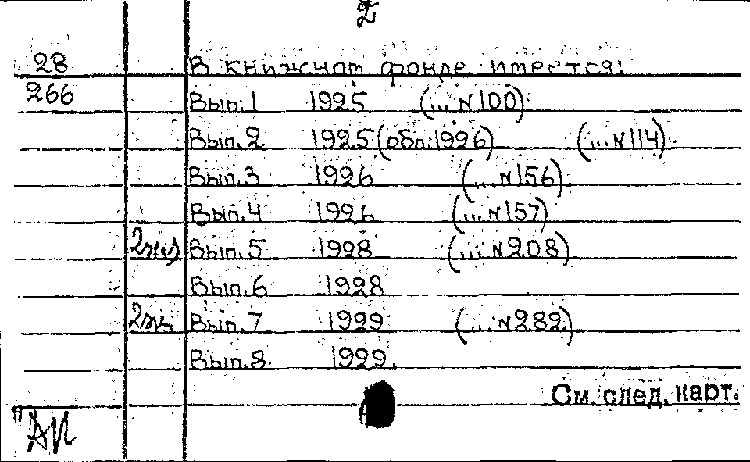 2
28 В книжном фонде имеется:
266 Вып.1 1925 (... №100)
Вып.2 1925 (обл.:1926) (... №114)
Вып.3 1926 (... №156)
Вып.4 1926 (... №157)
2экз Вып.5 1928 (... №208)
Вып.6 1928
2экз Вып.7 1929 (... №282)
Вып.8 1929
См. след. карт.